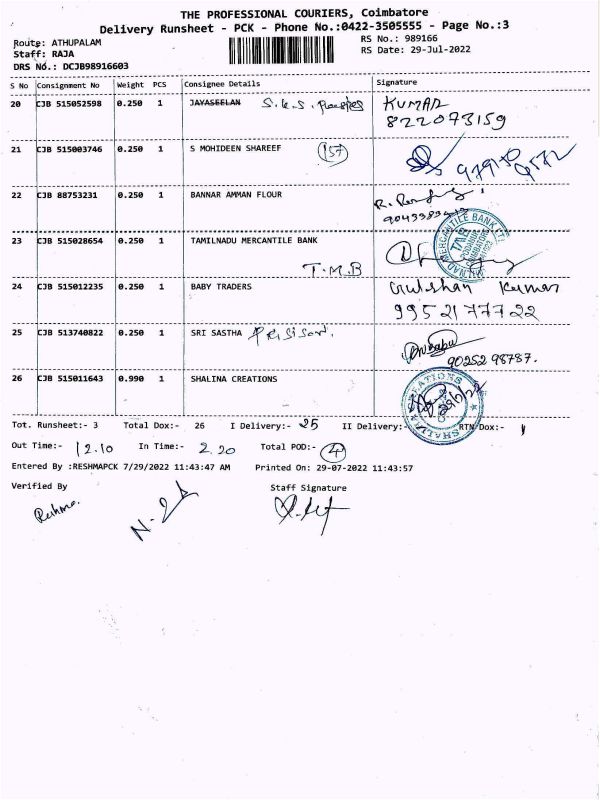 THE PROFESSIONAL COURIERS, Coimbatore
Delivery Runsheet - PCK - Phone No.:0422-3505555 - Page No.:3
Route: ATHUPALAM RS No.: 989166
Staff: RAJA RS Date: 29-Jul-2022
DRS No.: DCJB98916603
S No Consignment No Weight PCS Consignee Details Signature
20 CJB 515052598 0.250 1 JAYASEELAN S.K.S. KUMAR
822073159
21 CJB 515003746 0.250 1 S MOHIDEEN SHAREEF 157
22 CJB 88753231 0.250 1 BANNAR AMMAN FLOUR
23 CJB 515028654 0.250 1 TAMILNADU MERCANTILE BANK
T.M.B
24 CJB 515012235 0.250 1 BABY TRADERS Gulshan Kumar
9952177722
25 CJB 513740822 0.250 1 SRI SASTHA
90252 98787.
26 CJB 515011643 0.990 1 SHALINA CREATIONS
Tot. Runsheet:- 3 Total Dox:- 26 I Delivery:- 25 II Delivery:- RTN Dox:- 1
Out Time:- 12.10 In Time:- 2.20 Total POD:- 4
Entered By :RESHMAPCK 7/29/2022 11:43:47 AM Printed On: 29-07-2022 11:43:57
Verified By Staff Signature
Reshma.